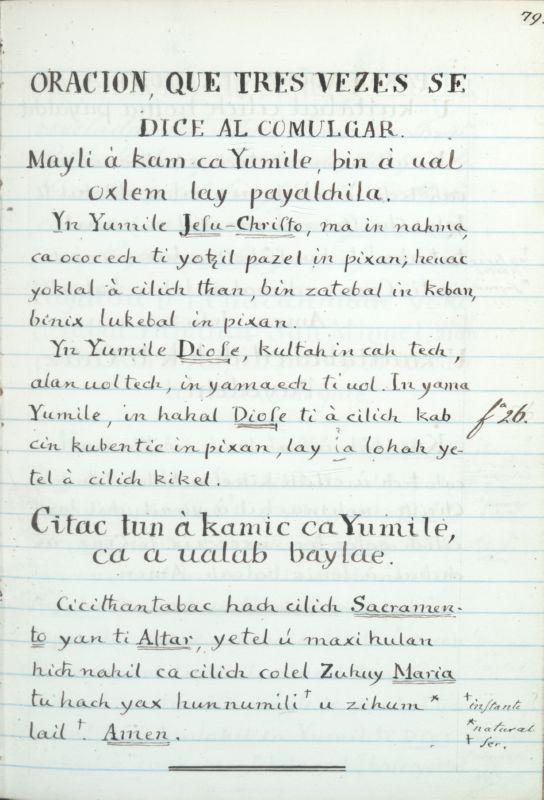 79.
ORACION, QUE TRES VEZES SE
DICE AL COMULGAR.
Mayli à kam ca Yumile, bin à ual
oxlem lay payalchila.
Yn Yumile Jesu-Christo, ma in nahma,
ca ococech ti yotzil pazel in pixan; heuac
yoklal à cilich than bin zatebal in keban,
binix lukebal in pixan.
Yn Yumile Diose, kultah in cah tech,
alan uol tech, in yamaech ti uol. In yama
Yumile, in hahal Diose ti à cilich kab
cin kubentic in pixan, lay ía lohah ye-
tel à cilich kikel.
fª 26.
Citac tun a kamic ca Yumile,
ca a ualab baylae.
Cicithantabac hach cilich Sacramen-
to yan ti Altar, yetel ú maxi hulan
hich nahil ca cilich colel Zuhuy Maria
tu hach yax hunnumili † u zihum *
lail †. Amen.
† instante
* natural
† ser.